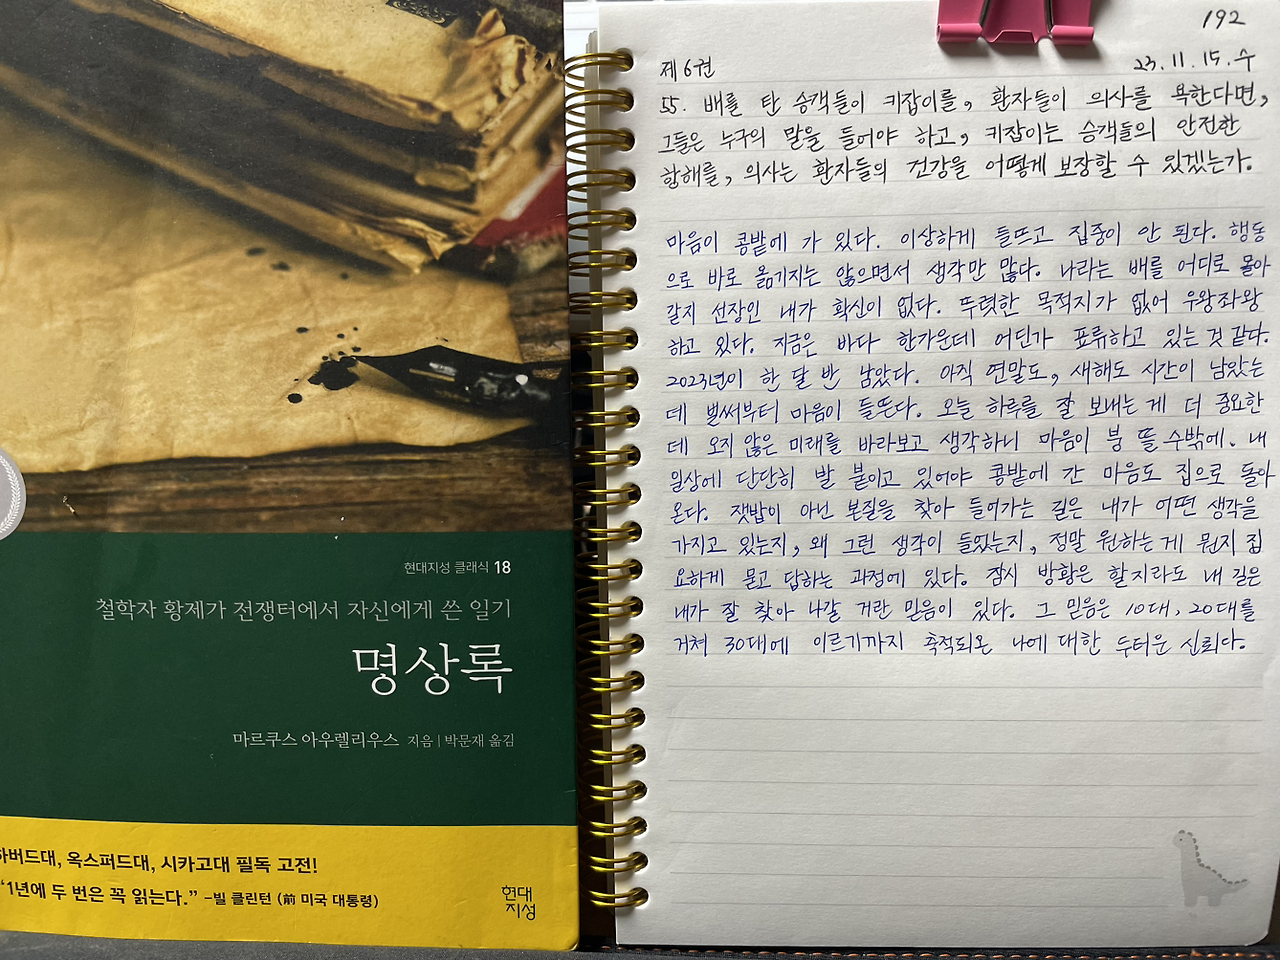 현대지성 클래식 18
철학자 황제가 전쟁터에서 자신에게 쓴 일기
명상록
마르쿠스 아우렐리우스 지음 | 박문재 옮김
하버드대, 옥스퍼드대, 시카고대 필독 고전!
“1년에 두 번은 꼭 읽는다.” -빌 클린턴 (前 미국 대통령)
현대
지성
192
제6권 23.11.15.수
55. 배를 탄 승객들이 키잡이를, 환자들이 의사를 욕한다면,
그들은 누구의 말을 들어야 하고, 키잡이는 승객들의 안전한
항해를, 의사는 환자들의 건강을 어떻게 보장할 수 있겠는가.
마음이 콩밭에 가 있다. 이상하게 들뜨고 집중이 안 된다. 행동
으로 바로 옮기지는 않으면서 생각만 많다. 나라는 배를 어디로 몰아
갈지 선장인 내가 확신이 없다. 뚜렷한 목적지가 없어 우왕좌왕
하고 있다. 지금은 바다 한가운데 어딘가 표류하고 있는 것 같다.
2023년이 한 달 반 남았다. 아직 연말도, 새해도 시간이 남았는
데 벌써부터 마음이 들뜬다. 오늘 하루를 잘 보내는 게 더 중요한
데 오지 않은 미래를 바라보고 생각하니 마음이 붕 뜰 수밖에. 내
일상에 단단히 발 붙이고 있어야 콩밭에 간 마음도 집으로 돌아
온다. 잿밥이 아닌 본질을 찾아 들어가는 길은 내가 어떤 생각을
가지고 있는지, 왜 그런 생각이 들었는지, 정말 원하는 게 뭔지 집
요하게 묻고 답하는 과정에 있다. 잠시 방황은 할지라도 내 길은
내가 잘 찾아 나갈 거란 믿음이 있다. 그 믿음은 10대, 20대를
거쳐 30대에 이르기까지 축적되온 나에 대한 두터운 신뢰다.